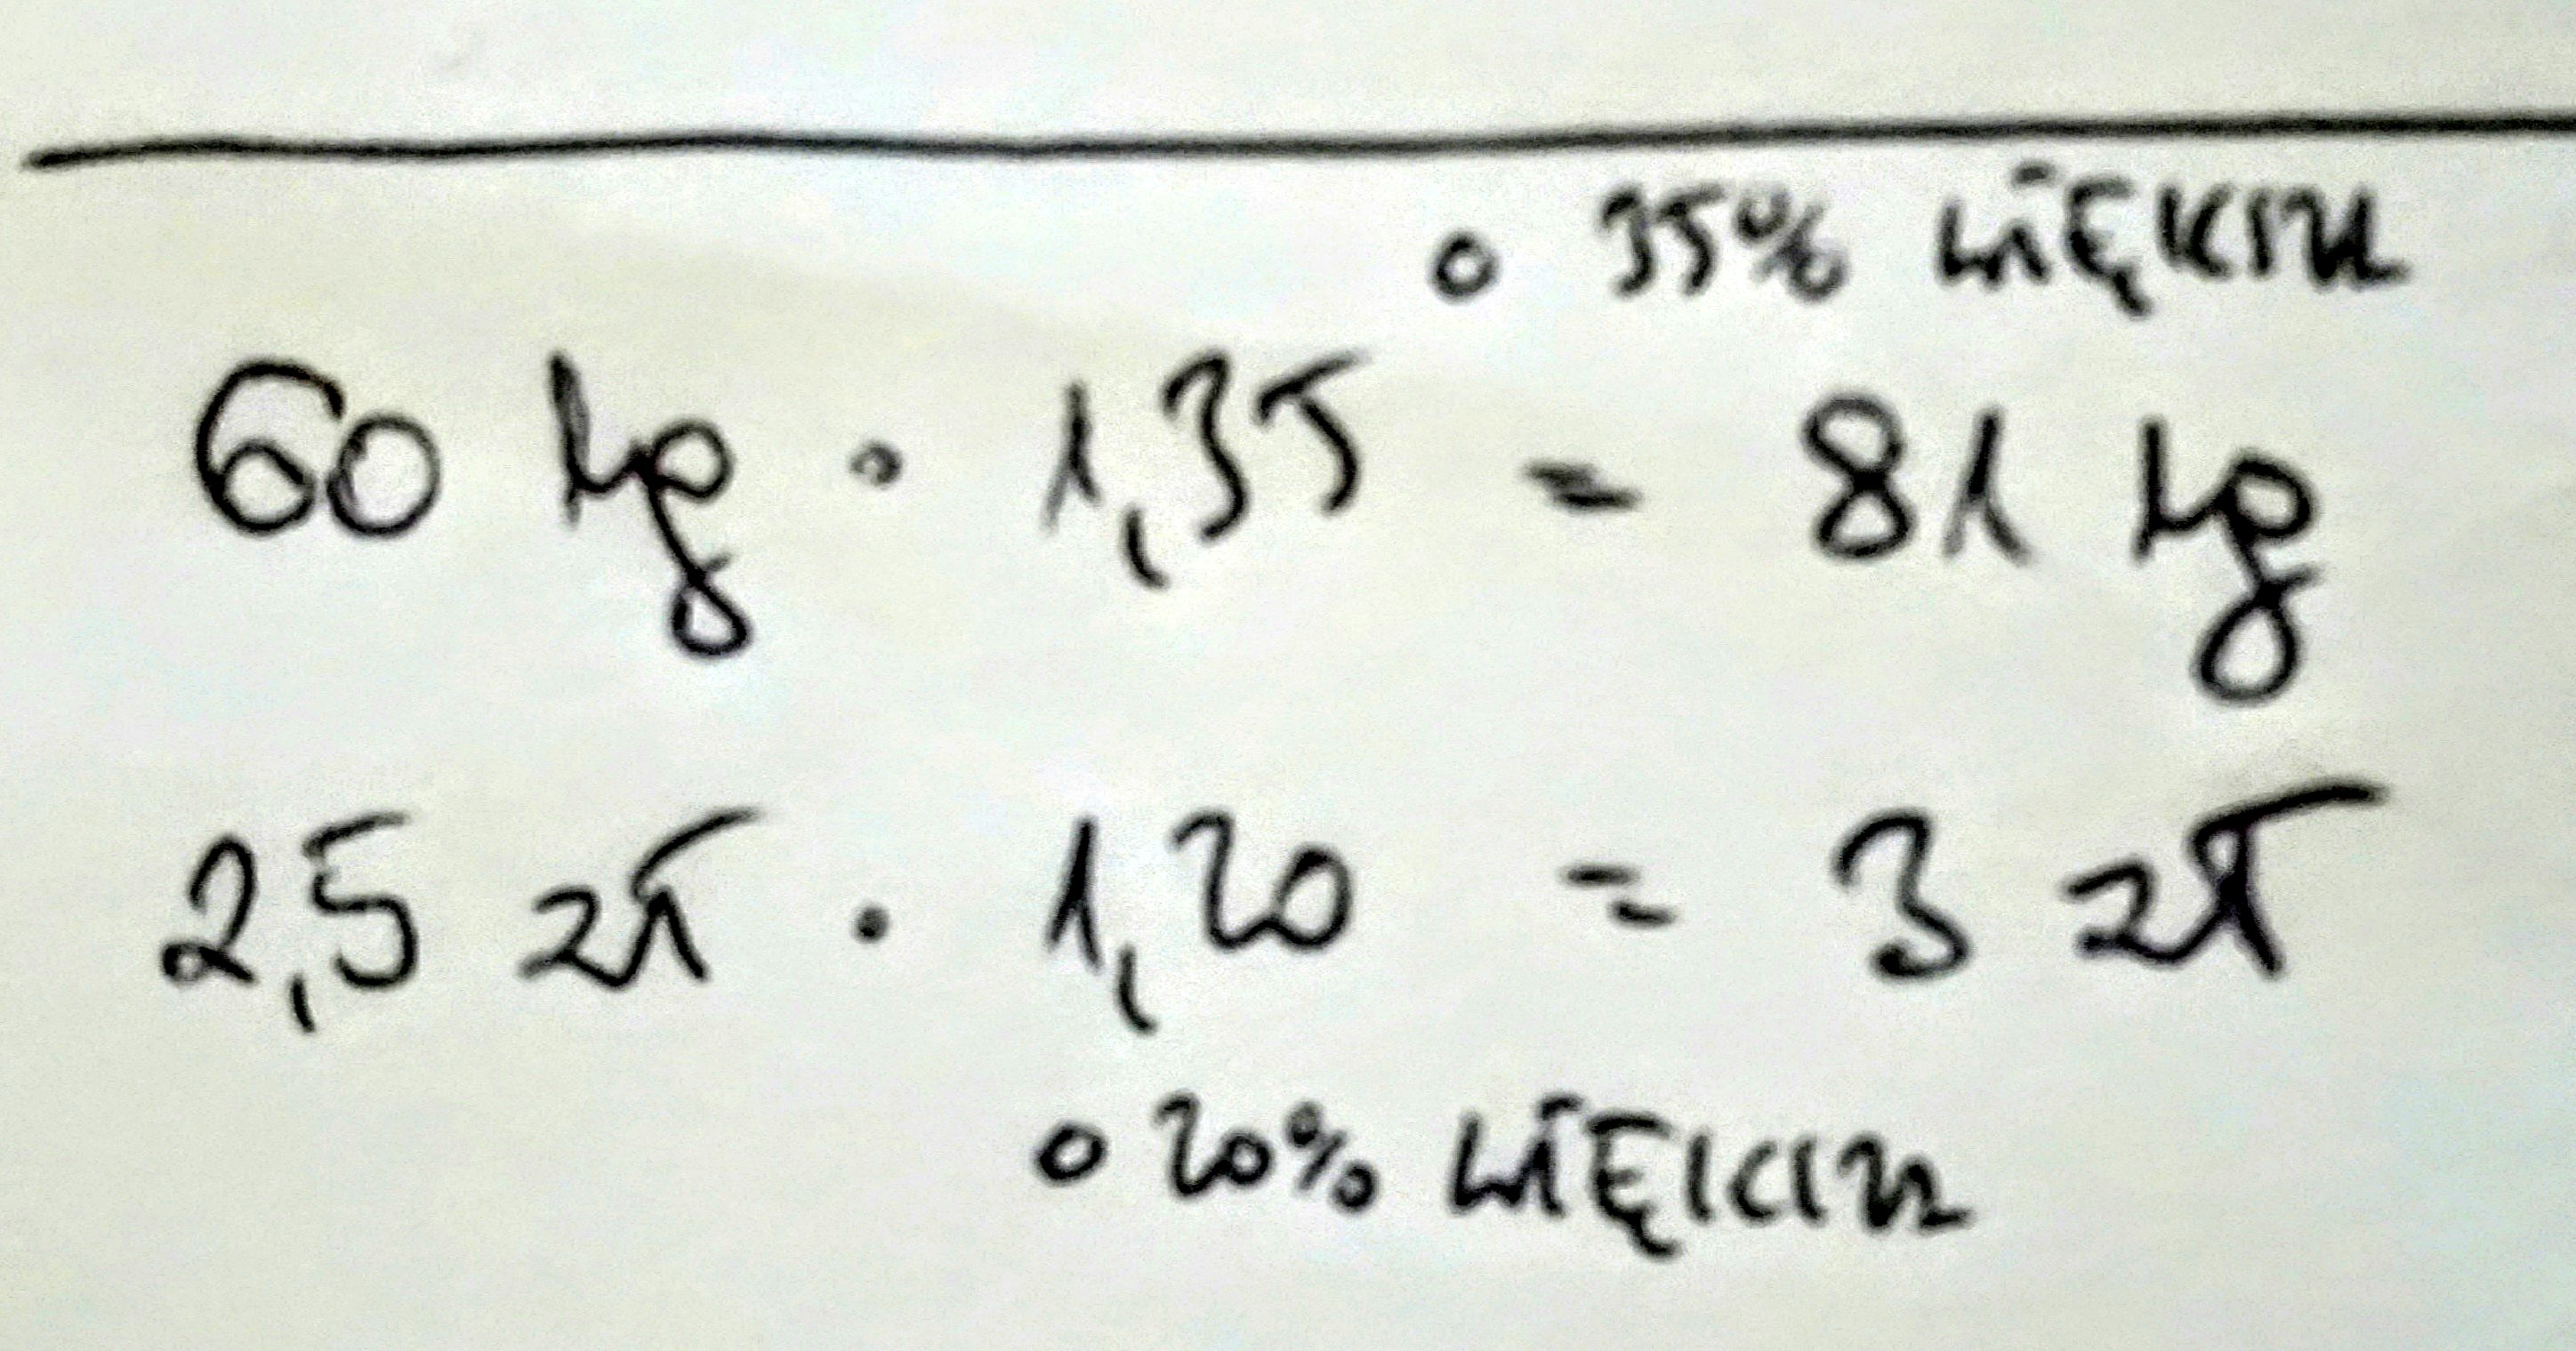 o 35% WIĘKSZA
60 kg · 1,35 = 81 kg
2,5 zł · 1,20 = 3 zł
o 20% WIĘKSZA